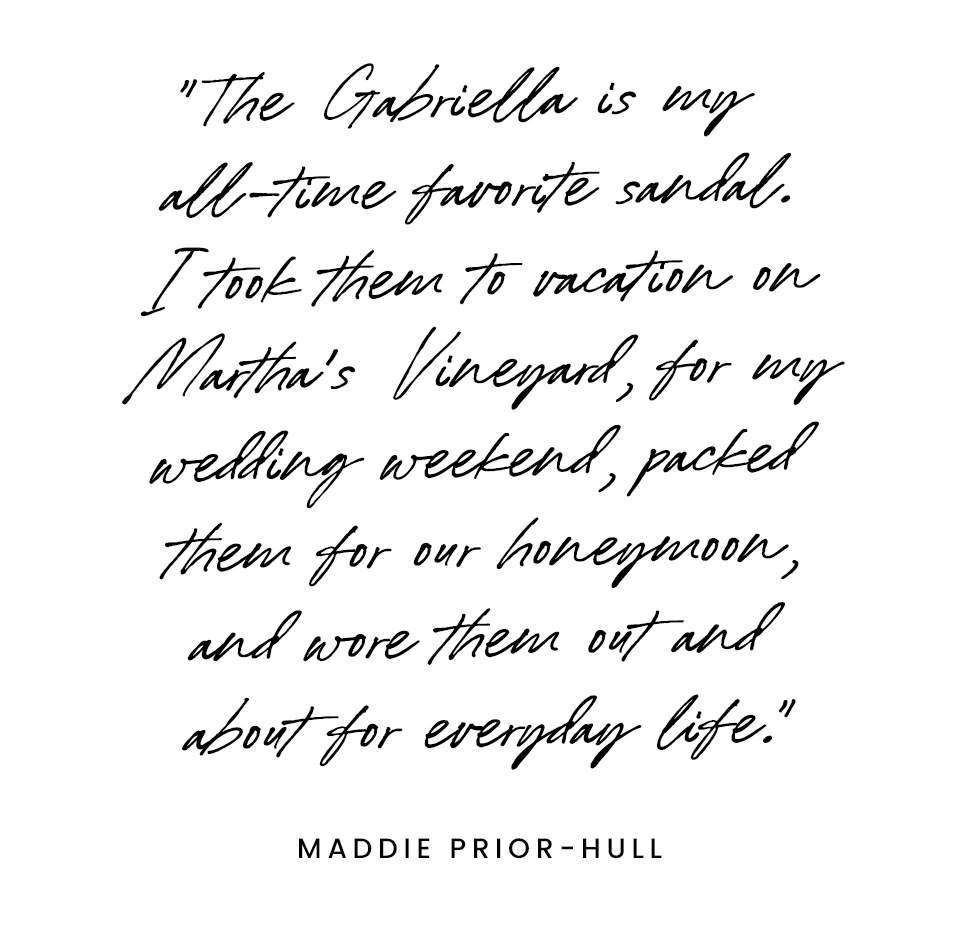 "The Gabriella is my
all-time favorite sandal.
I took them to vacation on
Martha's Vineyard, for my
wedding weekend, packed
them for our honeymoon,
and wore them out and
about for everyday life."
MADDIE PRIOR-HULL